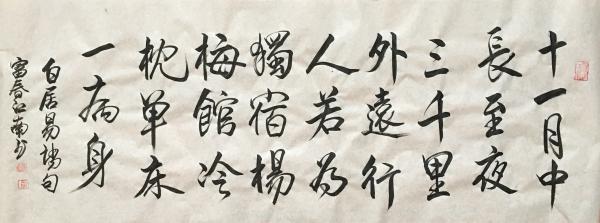 十一月中
長至夜
三千里
外遠行
人若為
獨宿楊
梅館冷
枕单床
一病身
白居易诗句
富春江南书